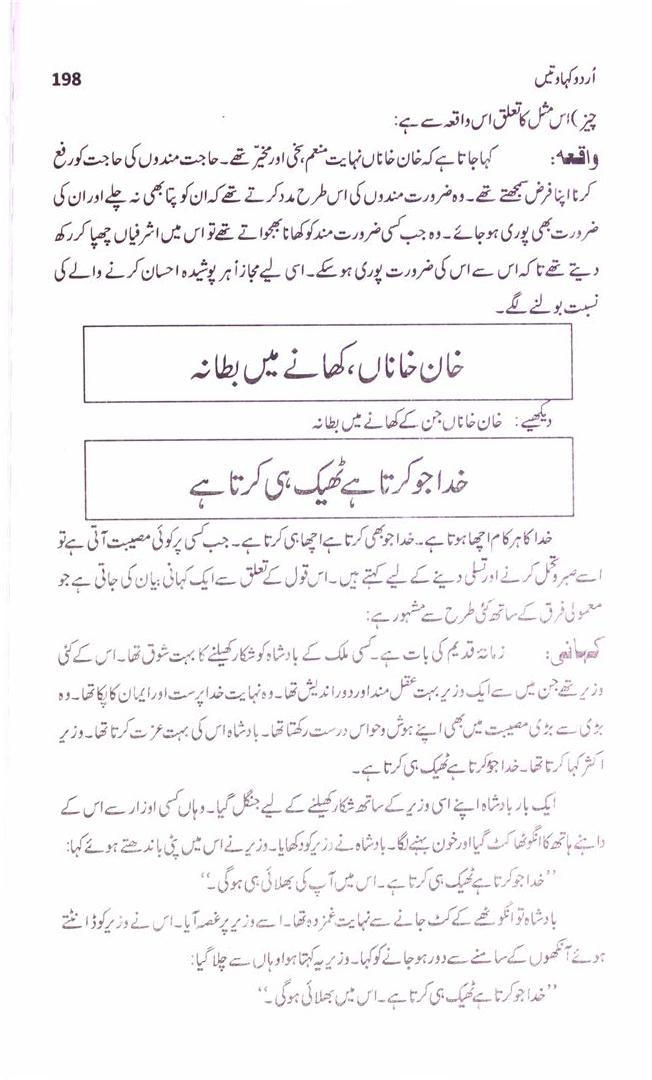 198
اُردو کہاوتیں
چیز) اس مثل کا تعلق اس واقعہ سے ہے:
واقعہ: کہا جاتا ہے کہ خان خاناں نہایت منعم، سخی اور مخیّر تھے۔ حاجت مندوں کی حاجت کو رفع
کرنا اپنا فرض سمجھتے تھے۔ وہ ضرورت مندوں کی اس طرح مدد کرتے تھے کہ ان کو پتا بھی نہ چلے اور ان کی
ضرورت بھی پوری ہو جائے۔ وہ جب کسی ضرورت مند کو کھانا بھجواتے تھے تو اس میں اشرفیاں چھپا کر رکھ
دیتے تھے تاکہ اس سے اس کی ضرورت پوری ہو سکے۔ اسی لیے مجازاً ہر پوشیدہ احسان کرنے والے کی
نسبت بولنے لگے۔
خان خاناں، کھانے میں بطانہ
دیکھیے: خان خاناں جن کے کھانے میں بطانہ
خدا جو کرتا ہے ٹھیک ہی کرتا ہے
خدا کا ہر کام اچھا ہوتا ہے۔ خدا جو بھی کرتا ہے اچھا ہی کرتا ہے۔ جب کسی پر کوئی مصیبت آتی ہے تو
اسے صبر و تحمل کرنے اور تسلی دینے کے لیے کہتے ہیں۔ اس قول کے تعلق سے ایک کہانی بیان کی جاتی ہے جو
معمولی فرق کے ساتھ کئی طرح سے مشہور ہے:
کہانی: زمانۂ قدیم کی بات ہے۔ کسی ملک کے بادشاہ کو شکار کھیلنے کا بہت شوق تھا۔ اس کے کئی
وزیر تھے جن میں سے ایک وزیر بہت عقل مند اور دور اندیش تھا۔ وہ نہایت خدا پرست اور ایمان کا پکا تھا۔ وہ
بڑی سے بڑی مصیبت میں بھی اپنے ہوش و حواس درست رکھتا تھا۔ بادشاہ اس کی بہت عزت کرتا تھا۔ وزیر
اکثر کہا کرتا تھا۔ خدا جو کرتا ہے ٹھیک ہی کرتا ہے۔
ایک بار بادشاہ اپنے اسی وزیر کے ساتھ شکار کھیلنے کے لیے جنگل گیا۔ وہاں کسی اوزار سے اس کے
داہنے ہاتھ کا انگوٹھا کٹ گیا اور خون بہنے لگا۔ بادشاہ نے وزیر کو دکھایا۔ وزیر نے اس میں پٹی باندھتے ہوئے کہا:
’’خدا جو کرتا ہے ٹھیک ہی کرتا ہے۔ اس میں آپ کی بھلائی ہی ہوگی۔‘‘
بادشاہ تو انگوٹھے کے کٹ جانے سے نہایت غمزدہ تھا۔ اسے وزیر پر غصہ آیا۔ اس نے وزیر کو ڈانٹتے
ہوئے آنکھوں کے سامنے سے دور ہو جانے کو کہا۔ وزیر یہ کہتا ہوا وہاں سے چلا گیا:
’’خدا جو کرتا ہے ٹھیک ہی کرتا ہے۔ اس میں بھلائی ہوگی۔‘‘